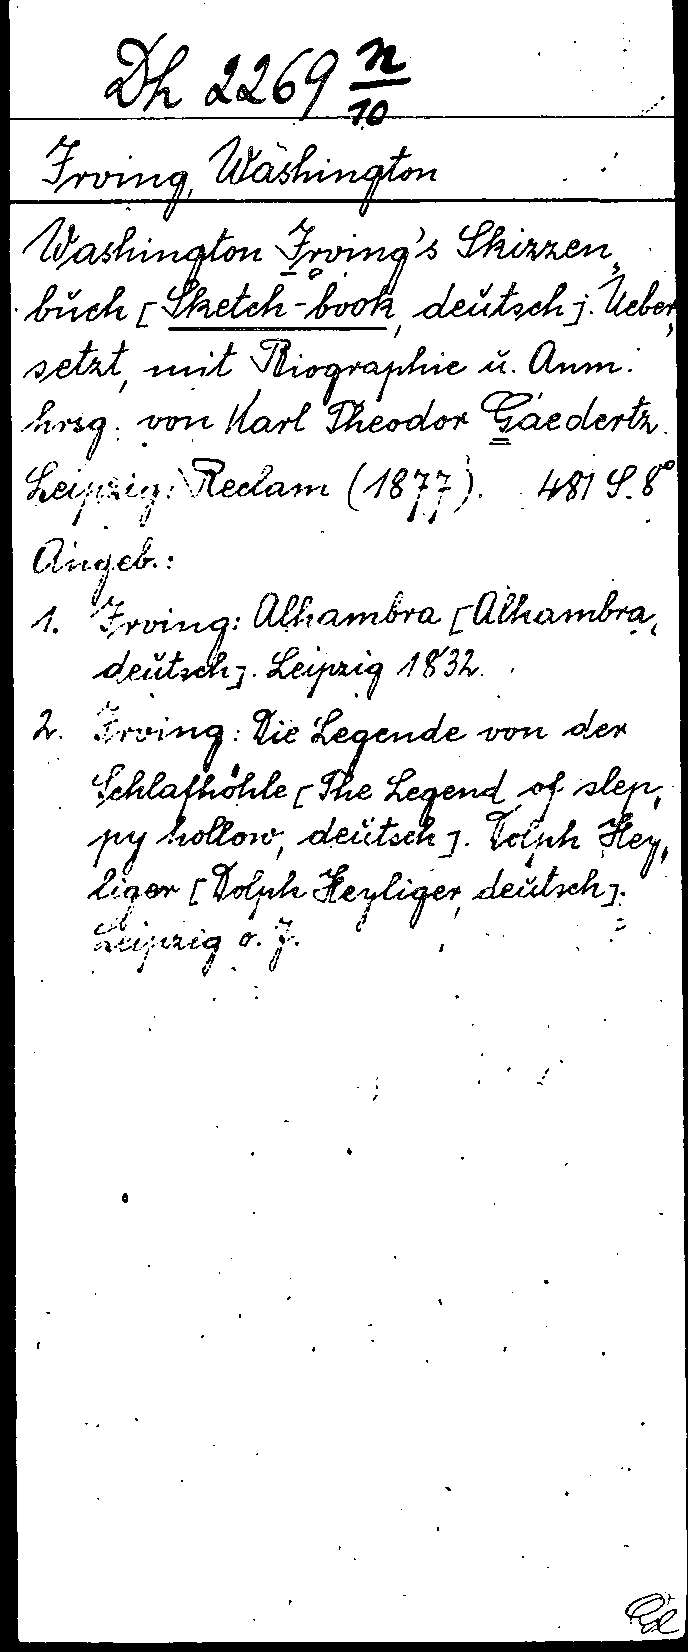 Dh 2269 n/10
Irving, Washington
Washington Irving's Skizzen-
buch [Sketch-book, deutsch]. Ueber-
setzt, mit Biographie u. Anm.
hrsg. von Karl Theodor Gaedertz.
Leipzig: Reclam (1877). 481 S. 8°
Angeb.:
1. Irving: Alhambra [Alhambra,
deutsch]. Leipzig 1832.
2. Irving: Die Legende von der
Schlafhöhle [The Legend of slep-
py hollow, deutsch]. Dolph Hey-
liger [Dolph Heyliger, deutsch].
Leipzig o. J.